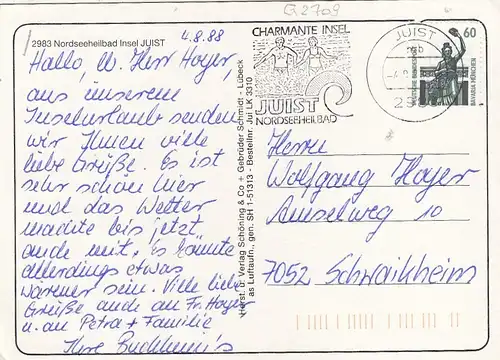 Q2709
4.8.88
2983 Nordseeheilbad Insel JUIST
Hallo, lb. Herr Hoyer,
aus unserem
Inselurlaub senden
wir Ihnen viele
liebe Grüße. Es ist
sehr schön hier
und das Wetter
machte bis jetzt
auch mit. Es könnte
allerdings etwas
wärmer sein. Viele liebe
Grüße auch an Fr. Hoyer
u. an Petra + Familie
Ihre Buchheim's
Horst. u. Verlag Schöning & Co + Gebrüder Schmidt - Lübeck
as Luftaufn., gen. SH 1-51313 - Bestellnr. Jui LK 3310
CHARMANTE INSEL
JUIST
NORDSEEHEILBAD
JUIST
60
DEUTSCHE BUNDESPOST
BAVARIA MÜNCHEN
Herrn
Wolfgang Hoyer
Amselweg 10
7052 Schwaikheim